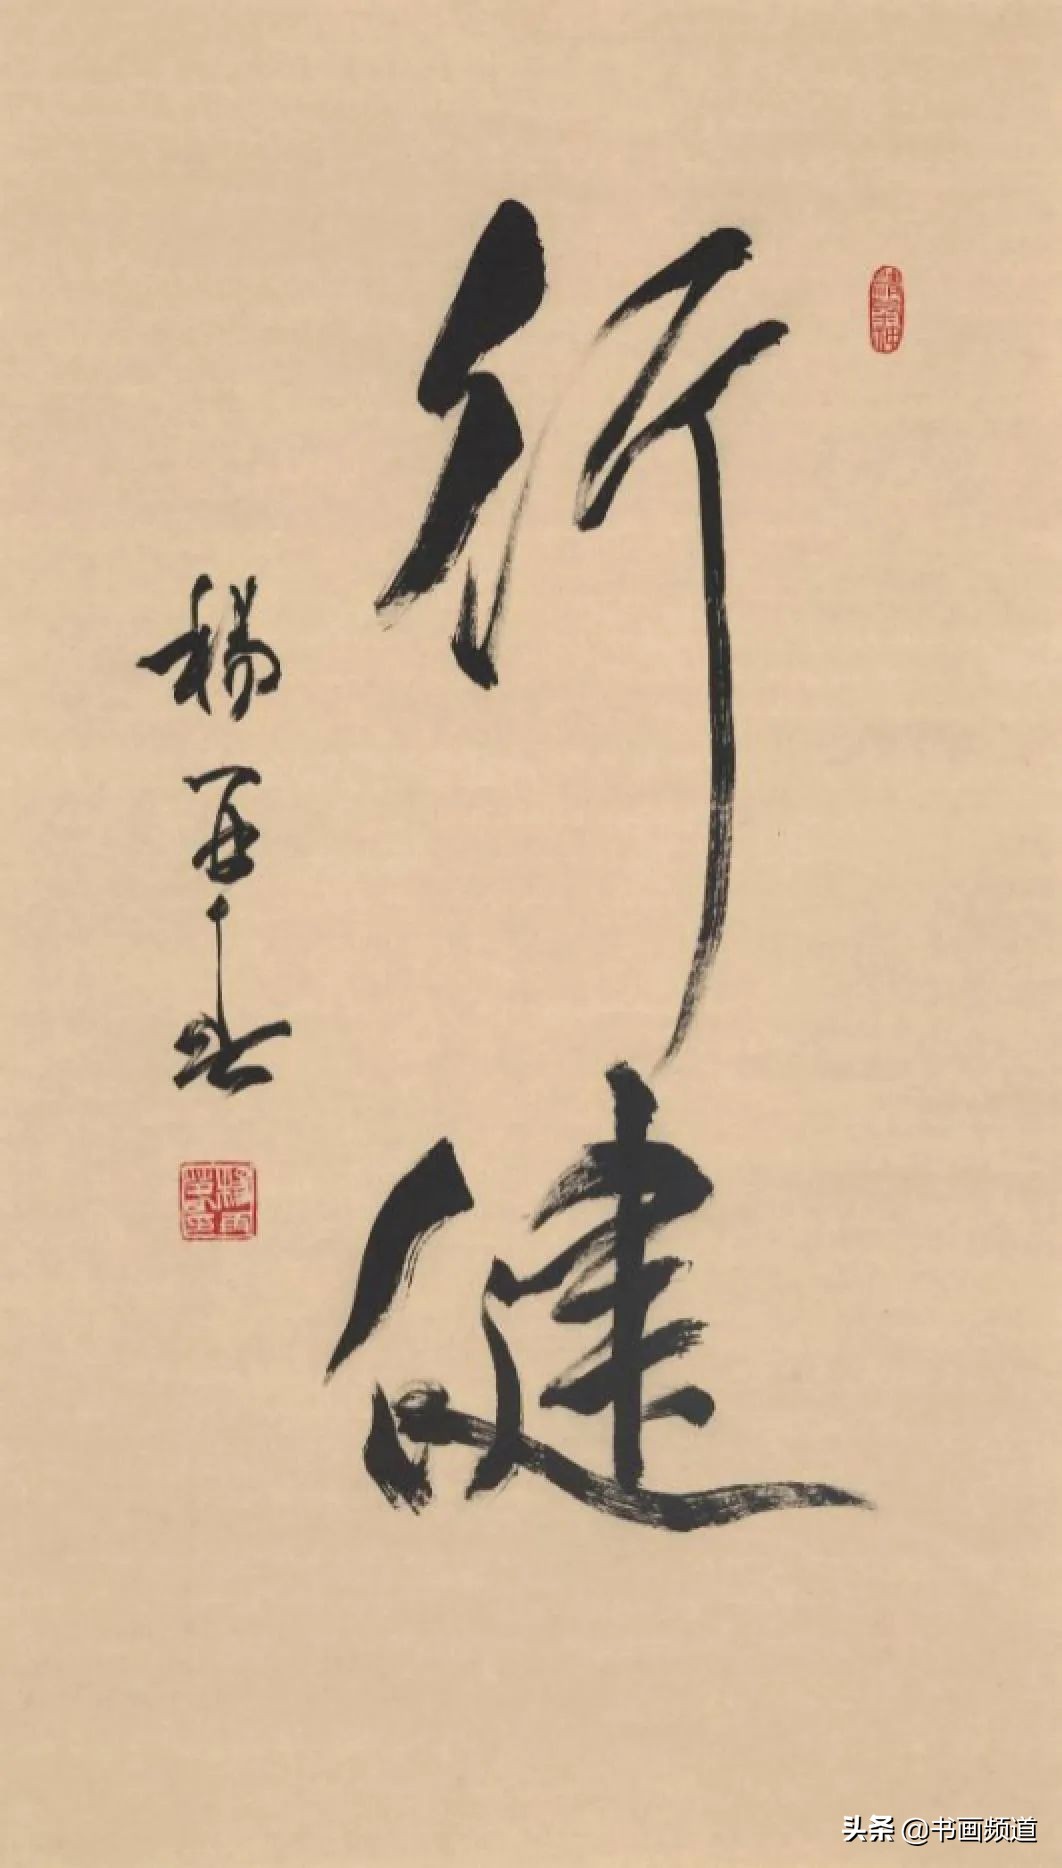 行健
楊再春
头条 @书画频道